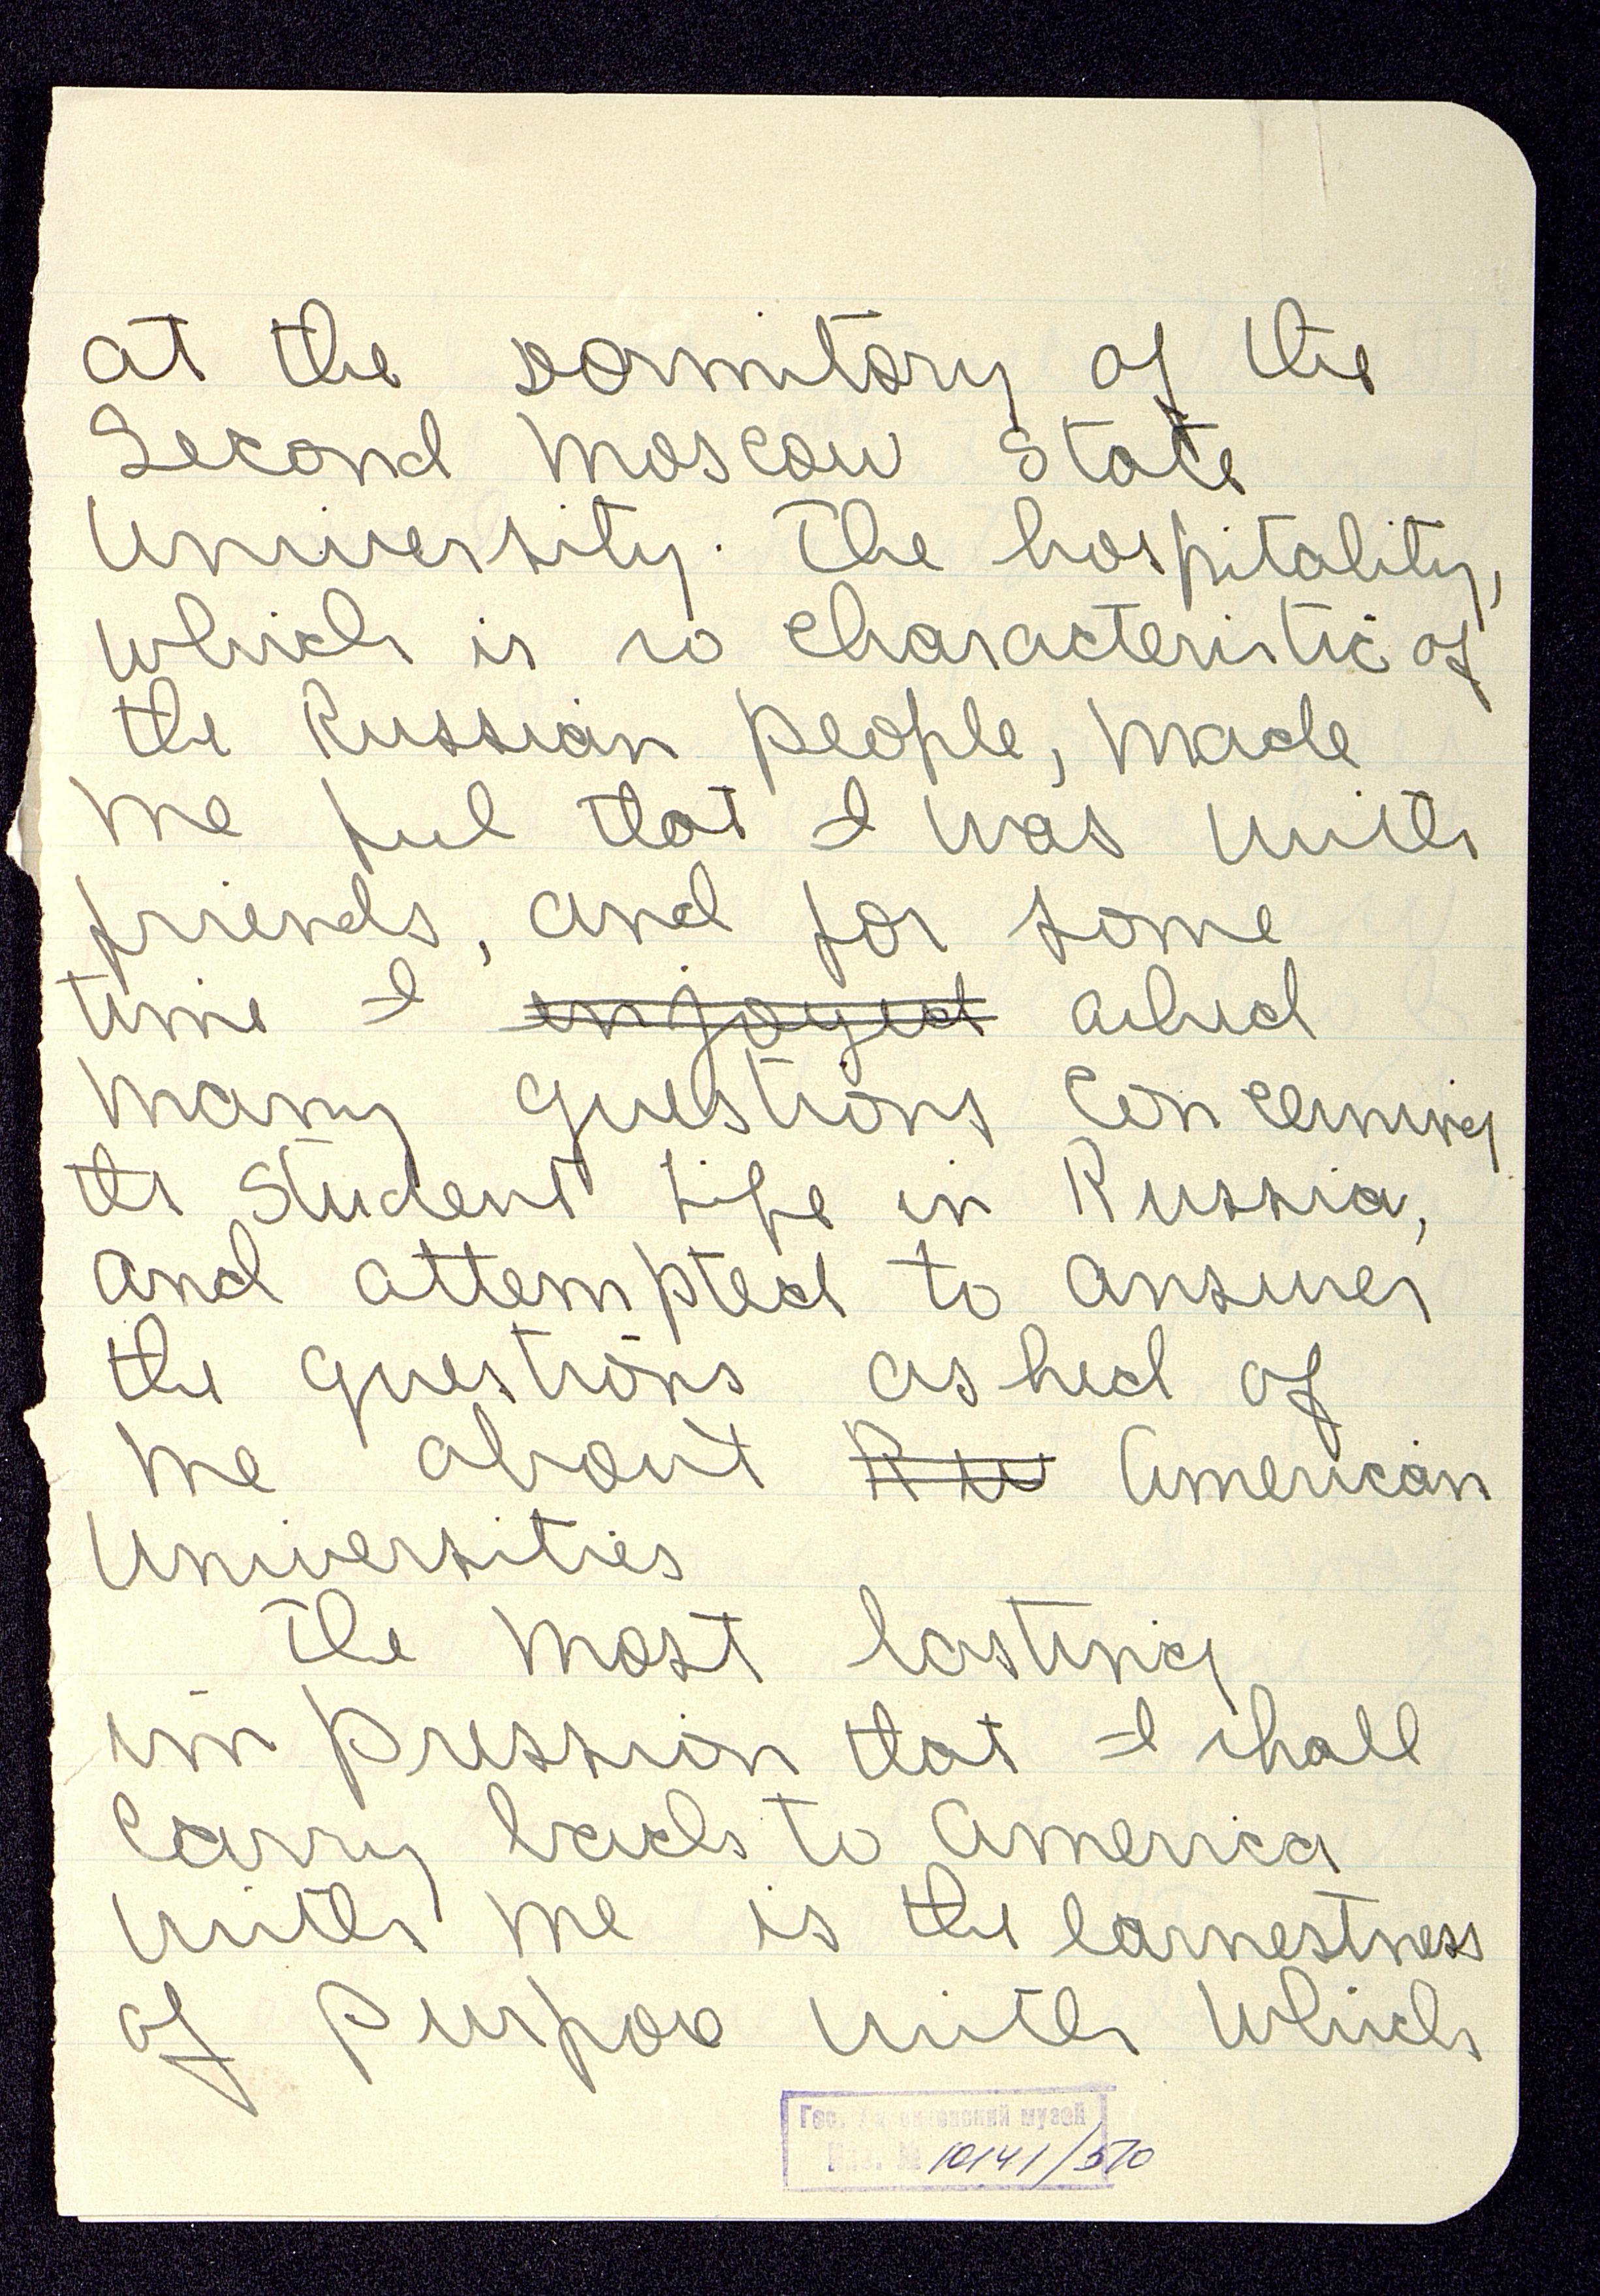 at the dormitory of the
Second Moscow State
University. The hospitality,
which is so characteristic of
the Russian people, made
me feel that I was with
friends, and for some
time I enjoyed asked
many questions concerning
the student life in Russia,
and attempted to answer
the questions asked of
me about Ru American
Universities
The most lasting
impression that I shall
carry back to America
with me is the earnestness
of purpose with which
Гос. музей
№ 10141/570